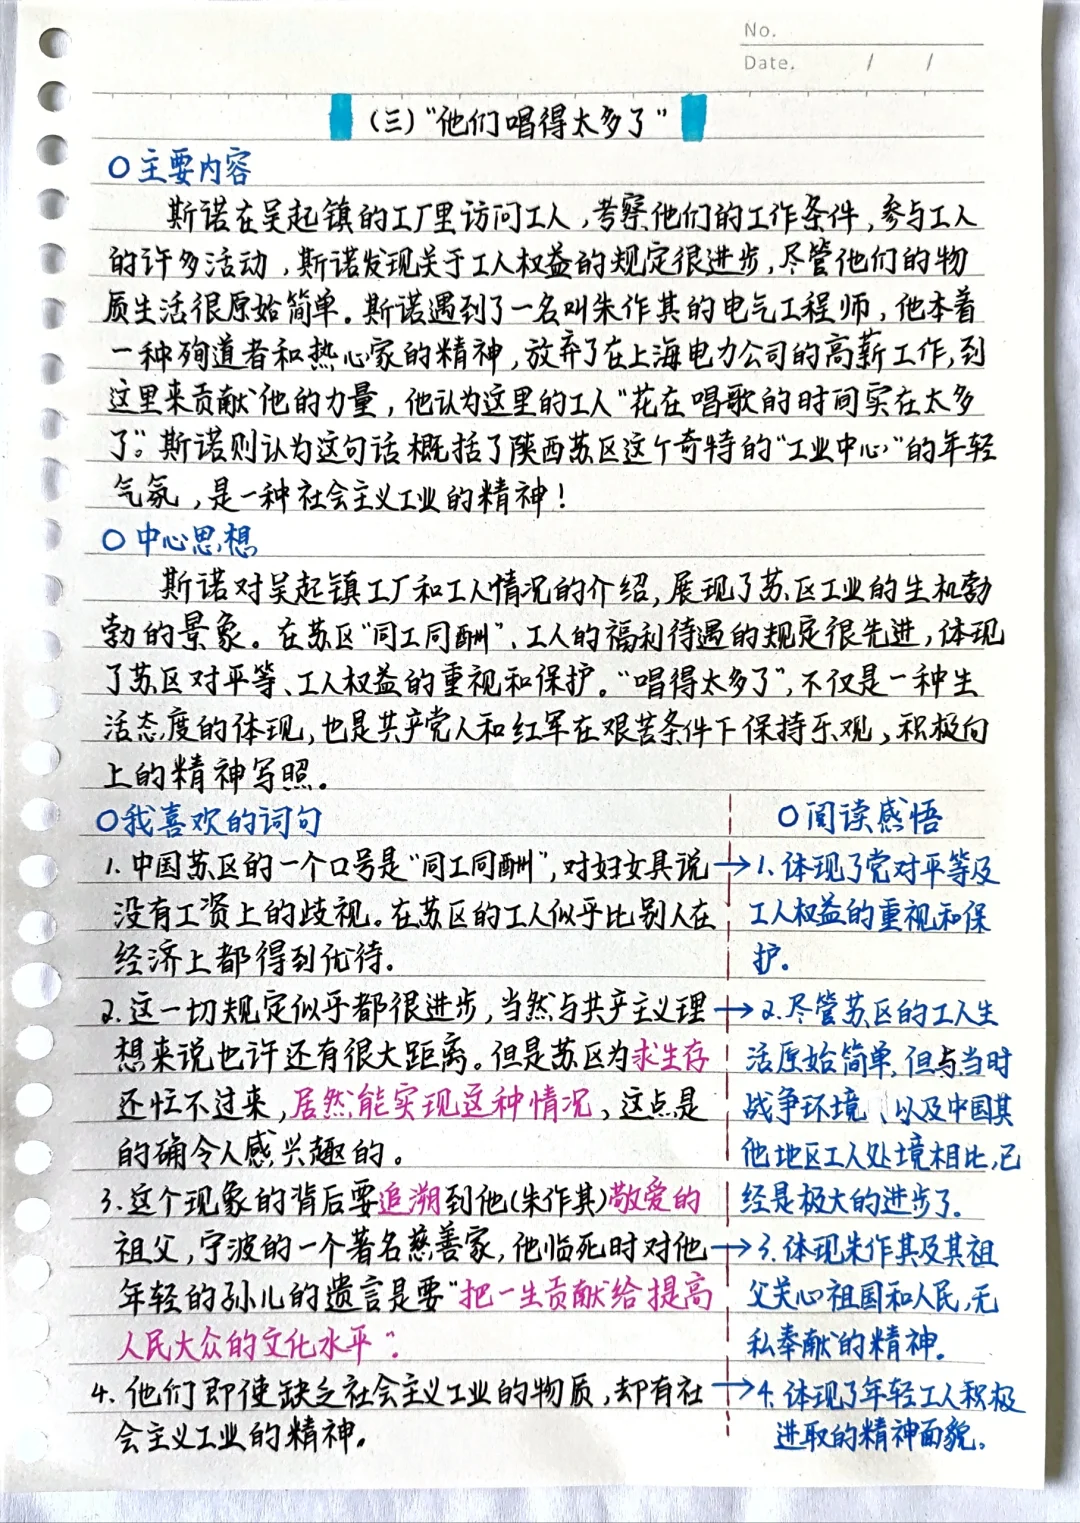 No.
Date. / /
(三)“他们唱得太多了”
○主要内容
斯诺在吴起镇的工厂里访问工人,考察他们的工作条件,参与工人
的许多活动,斯诺发现关于工人权益的规定很进步,尽管他们的物
质生活很原始简单。斯诺遇到了一名叫朱作其的电气工程师,他本着
一种殉道者和热心家的精神,放弃了在上海电力公司的高薪工作,到
这里来贡献他的力量,他认为这里的工人“花在唱歌的时间实在太多
了”。斯诺则认为这句话概括了陕西苏区这个奇特的“工业中心”的年轻
气氛,是一种社会主义工业的精神!
○中心思想
斯诺对吴起镇工厂和工人情况的介绍,展现了苏区工业的生机勃
勃的景象。在苏区“同工同酬”、工人的福利待遇的规定很先进,体现
了苏区对平等、工人权益的重视和保护。“唱得太多了”,不仅是一种生
活态度的体现,也是共产党人和红军在艰苦条件下保持乐观,积极向
上的精神写照。
○我喜欢的词句
1.中国苏区的一个口号是“同工同酬”,对妇女具说
没有工资上的歧视。在苏区的工人似乎比别人在
经济上都得到优待.
2.这一切规定似乎都很进步,当然与共产主义理
想来说也许还有很大距离。但是苏区为求生存
还忙不过来,居然能实现这种情况,这点是
的确令人感兴趣的。
3.这个现象的背后要追溯到他(朱作其)敬爱的
祖父,宁波的一个著名慈善家,他临死时对他
年轻的孙儿的遗言是要“把一生贡献给提高
人民大众的文化水平”.
4.他们即使缺乏社会主义工业的物质,却有社
会主义工业的精神。
○阅读感悟
→1.体现了党对平等及
工人权益的重视和保
护。
→2.尽管苏区的工人生
活原始简单,但与当时
战争环境、以及中国其
他地区工人处境相比,已
经是极大的进步了.
→3.体现朱作其及其祖
父关心祖国和人民,无
私奉献的精神.
→4.体现了年轻工人积极
进取的精神面貌。